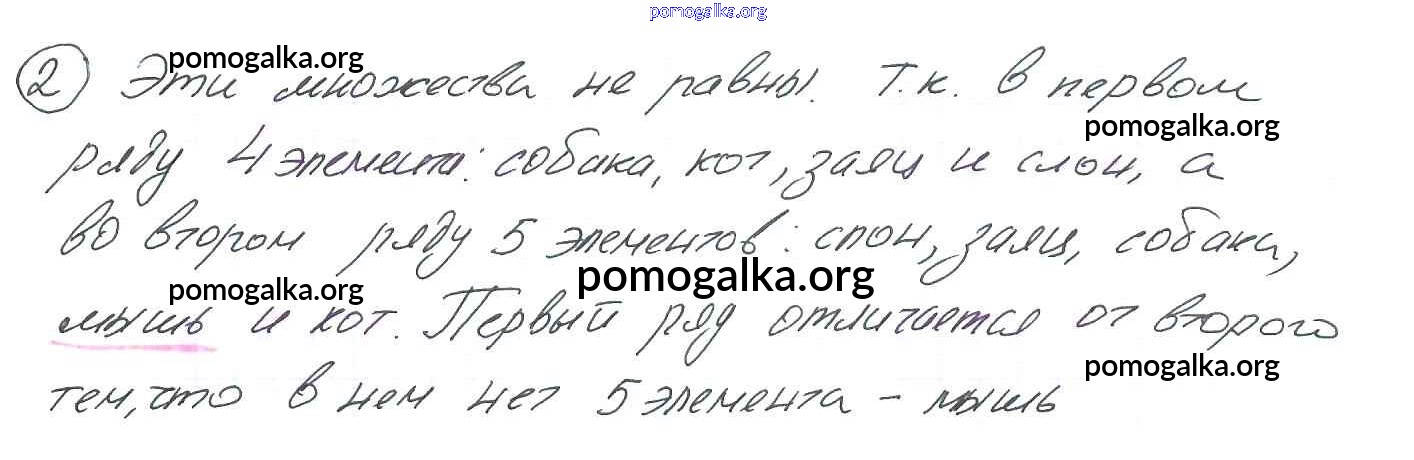 pomogalka.org
pomogalka.org
2 Эти множества не равны. Т.к. в первом
pomogalka.org
ряду 4 элемента: собака, кот, заяц и слон, а
во втором ряду 5 элементов: слон, заяц, собака,
pomogalka.org
pomogalka.org
мышь и кот. Первый ряд отличается от второго
pomogalka.org
тем, что в нем нет 5 элемента - мышь